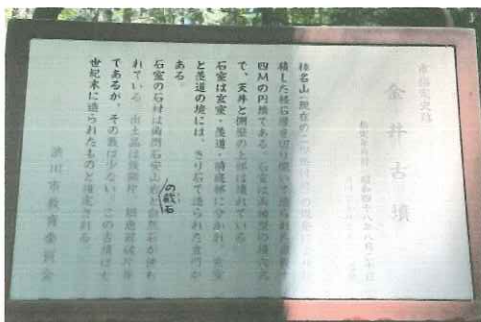 市指定史跡
金井古墳
指定年月日 昭和四十八年八月二十日
榛名山の現在のこの地は
積した軽石層を切り開いて造られた
四Mの円墳である。石室は両袖型の横穴式
で、天井と側壁の上部は壊れている。
石室は玄室・羨道・前庭部に分かれ、玄室
と羨道の境には、きり石で造られた玄門が
ある。
石室の石材は角閃石安山岩の截石と自然石が使わ
れている。出土品は
であるが、その数は少ない。この古墳は七
世紀末に造られたものと推定される。
渋川市教育委員会